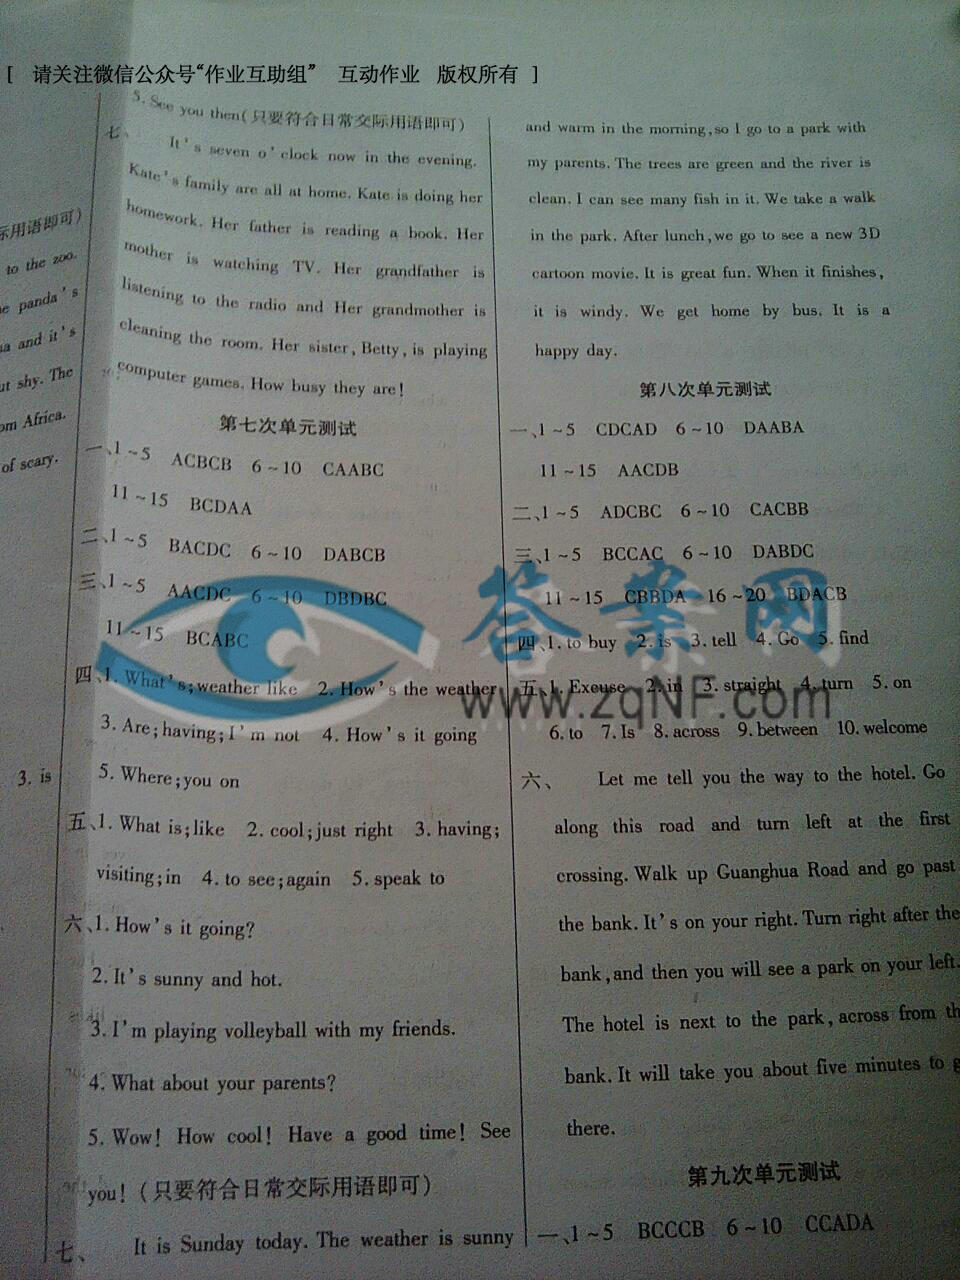 [ 请关注微信公众号“作业互助组” 互动作业 版权所有 ]
际用语即可)
to the zoo.
panda's
and it's
shy. The
Africa.
of scary.
3. is
5. See you then(只要符合日常交际用语即可)
七、
It's seven o'clock now in the evening.
Kate's family are all at home. Kate is doing her
homework. Her father is reading a book. Her
mother is watching TV. Her grandfather is
listening to the radio and Her grandmother is
cleaning the room. Her sister, Betty, is playing
computer games. How busy they are!
第七次单元测试
一、1~5 ACBCB 6~10 CAABC
11~15 BCDAA
二、1~5 BACDC 6~10 DABCB
三、1~5 AACDC 6~10 DBDBC
11~15 BCABC
四、1. What's;weather like 2. How's the weather
3. Are;having;I'm not 4. How's it going
5. Where;you on
五、1. What is;like 2. cool;just right 3. having;
visiting;in 4. to see;again 5. speak to
六、1. How's it going?
2. It's sunny and hot.
3. I'm playing volleyball with my friends.
4. What about your parents?
5. Wow! How cool! Have a good time! See
you!(只要符合日常交际用语即可)
七、 It is Sunday today. The weather is sunny
and warm in the morning,so I go to a park with
my parents. The trees are green and the river is
clean. I can see many fish in it. We take a walk
in the park. After lunch,we go to see a new 3D
cartoon movie. It is great fun. When it finishes,
it is windy. We get home by bus. It is a
happy day.
第八次单元测试
一、1~5 CDCAD 6~10 DAABA
11~15 AACDB
二、1~5 ADCBC 6~10 CACBB
三、1~5 BCCAC 6~10 DABDC
11~15 CBBDA 16~20 BDACB
四、1. to buy 2. is 3. tell 4. Go 5. find
五、1. Excuse 2. in 3. straight 4. turn 5. on
6. to 7. Is 8. across 9. between 10. welcome
六、 Let me tell you the way to the hotel. Go
along this road and turn left at the first
crossing. Walk up Guanghua Road and go past
the bank. It's on your right. Turn right after the
bank,and then you will see a park on your left.
The hotel is next to the park,across from
bank. It will take you about five minutes to
there.
第九次单元测试
一、1~5 BCCCB 6~10 CCADA
答案网
www.zqNF.com